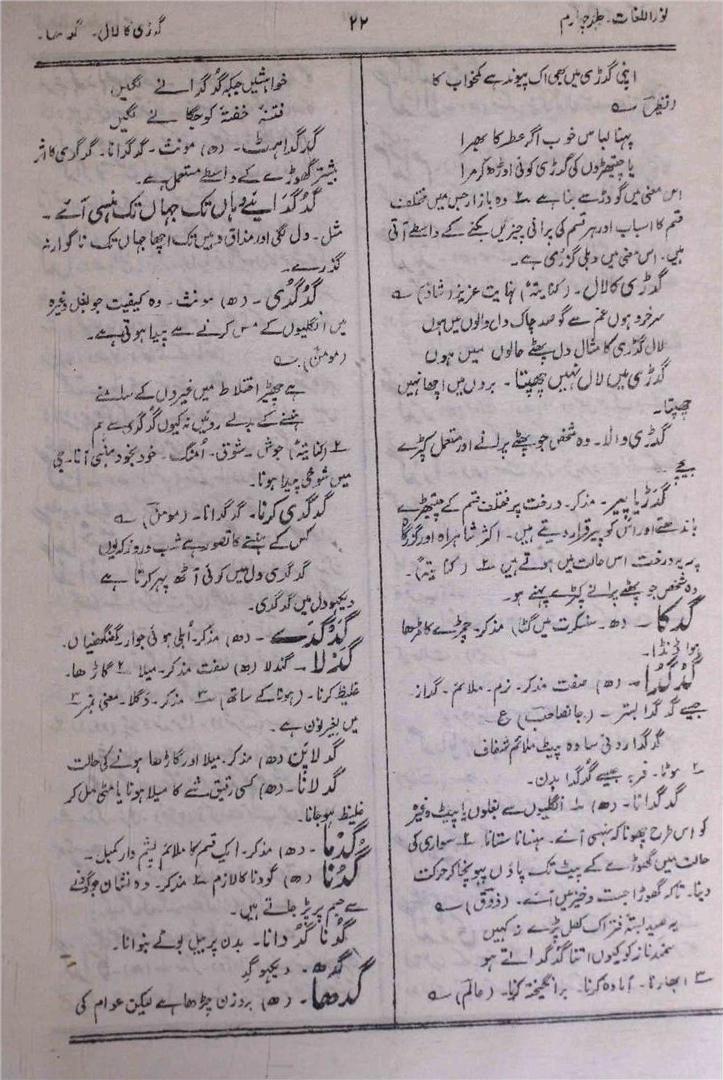 نور اللغات۔ جلد چہارم
۲۲
گدڑی کا لال۔ گدھا۔
اپنی گدڑی میں بھی اک پیوند ہے کمخواب کا
پہنا لباس خوب اگر عطر کا بھرا
یا چیتھڑوں کی گدڑی کوئی اوڑھ کر مرا
اس معنی میں گودڑ سے بنا ہے ۲ وہ بازار جس میں مختلف
قسم کا اسباب اور ہر قسم کی پرانی چیزیں بکنے کے واسطے آتی
ہیں۔ اس معنی میں دہلی گزری ہے۔
گدڑی کا لال۔ (کنایتہً) نہایت عزیز (شاد) ؎
سرخرو ہوں غم سے گو صد چاک داں والوں میں ہوں
لال گدڑی کا مثال دل پھٹے حالوں میں ہوں
گدڑی میں لال نہیں چھپتا۔ بروں میں اچھا نہیں
چھپتا۔
گدڑی والا۔ وہ شخص جو پھٹے پرانے اور مستعمل کپڑے
بیچے
گدڑیا پیر۔ مذکر۔ درخت پر مختلف قسم کے چیتھڑے
باندھتے اور اس کو پیر قرار دیتے ہیں۔ اکثر شاہراہ اور گزرگاہ
پر یہ درخت اس حالت میں ہوتے ہیں ۲ (کنایتہً)۔
وہ شخص جو پھٹے پرانے کپڑے پہنے ہو۔
گدکا۔ (دھ۔ سنسکرت میں گٹا) مذکر۔ چمڑے کا مڑھا
ہوا ڈنڈا۔
گدگدا۔ (ھ) صفت مذکر۔ نرم۔ ملائم۔ گداز۔
جیسے گدگدا بستر۔ (جانصاحب) ع
گدگدا روئی سا وہ پیٹ ملائم شفاف
۲ موٹا۔ فربہ جیسے گدگدا بدن۔
گدگدانا۔ (ھ) ۱ انگلیوں سے بغلوں یا پیٹ وغیرہ
کو اس طرح چھونا کہ ہنسی آئے۔ ہنسانا ستانا ۲ سواری کی
حالت میں گھوڑے کے پیٹ تک پاؤں پہونچا کر حرکت
دینا۔ تاکہ گھوڑا جست و خیز میں آئے۔ (ذوق) ؎
یہ صید بستہ فتراک کھل پڑے نہ کہیں
سمند ناز کو کیوں اتنا گدگداتے ہو
۳ ابھارنا۔ آمادہ کرنا۔ برانگیختہ کرنا۔ (عالم) ؎
خواہشیں جبکہ گدگدانے لگیں
فتنہ خفتہ کو جگانے لگیں
گدگداہٹ۔ (ھ) مونث۔ گدگدانا۔ گدگدی کا اثر
بیشتر گھوڑے کے واسطے مستعمل ہے۔
گدگدایئے وہاں تک جہاں تک ہنسی آئے۔
مثل۔ دل لگی اور مذاق وہیں تک اچھا جہاں تک ناگوار نہ
گذرے۔
گدگدی۔ (ھ) مونث۔ وہ کیفیت جو بغل وغیرہ
میں انگلیوں کے مس کرنے سے پیدا ہوتی ہے۔
(مومن) ؎
ہے چھیڑ اختلاط میں غیروں کے سامنے
ہنسنے کے بدلے روئیں نہ کیوں گدگدی سے ہم
۲ (کنایتہً) جوش۔ شوق۔ امنگ۔ خود بخود ہنسی آنا۔ جی
میں شوخی پیدا ہونا۔
گدگدی کرنا۔ گدگدانا۔ (مومن) ؎
کس کے ہنسنے کا تصور ہے شب و روز کہ یوں
گدگدی دل میں کوئی آٹھ پہر کرتا ہے
دیکھو دل میں گدگدی۔
گدگدے۔ (ھ) مذکر۔ ابلی ہوئی جوار گھنگھنیاں۔
گدلا۔ گندلا (ھ) صفت مذکر۔ میلا ۲ گاڑھا۔
غلیظ کرنا۔ (ہونا کے ساتھ) ۳ مذکر۔ دگلا۔ معنی نمبر ۳
میں بغیر نون ہے۔
گدلاپن (ھ) مذکر۔ میلا اور گاڑھا ہونے کی حالت
گدلانا۔ (ھ) کسی رقیق شے کا میلا ہونا یا مٹی مل کر
غلیظ ہو جانا۔
گدما۔ (ھ) مذکر۔ ایک قسم کا ملائم پشم دار کمبل۔
گدنا (ھ) گودنا کا لازم ۲ مذکر۔ وہ نشان جو گودنے
سے جسم پر پڑ جاتے ہیں۔
گدنا گدوانا۔ بدن پر بیل بوٹے بنوانا۔
گدھ۔ دیکھو گِد
گدھا۔ (ھ) بروزن چڑھا ہے لیکن عوام کی